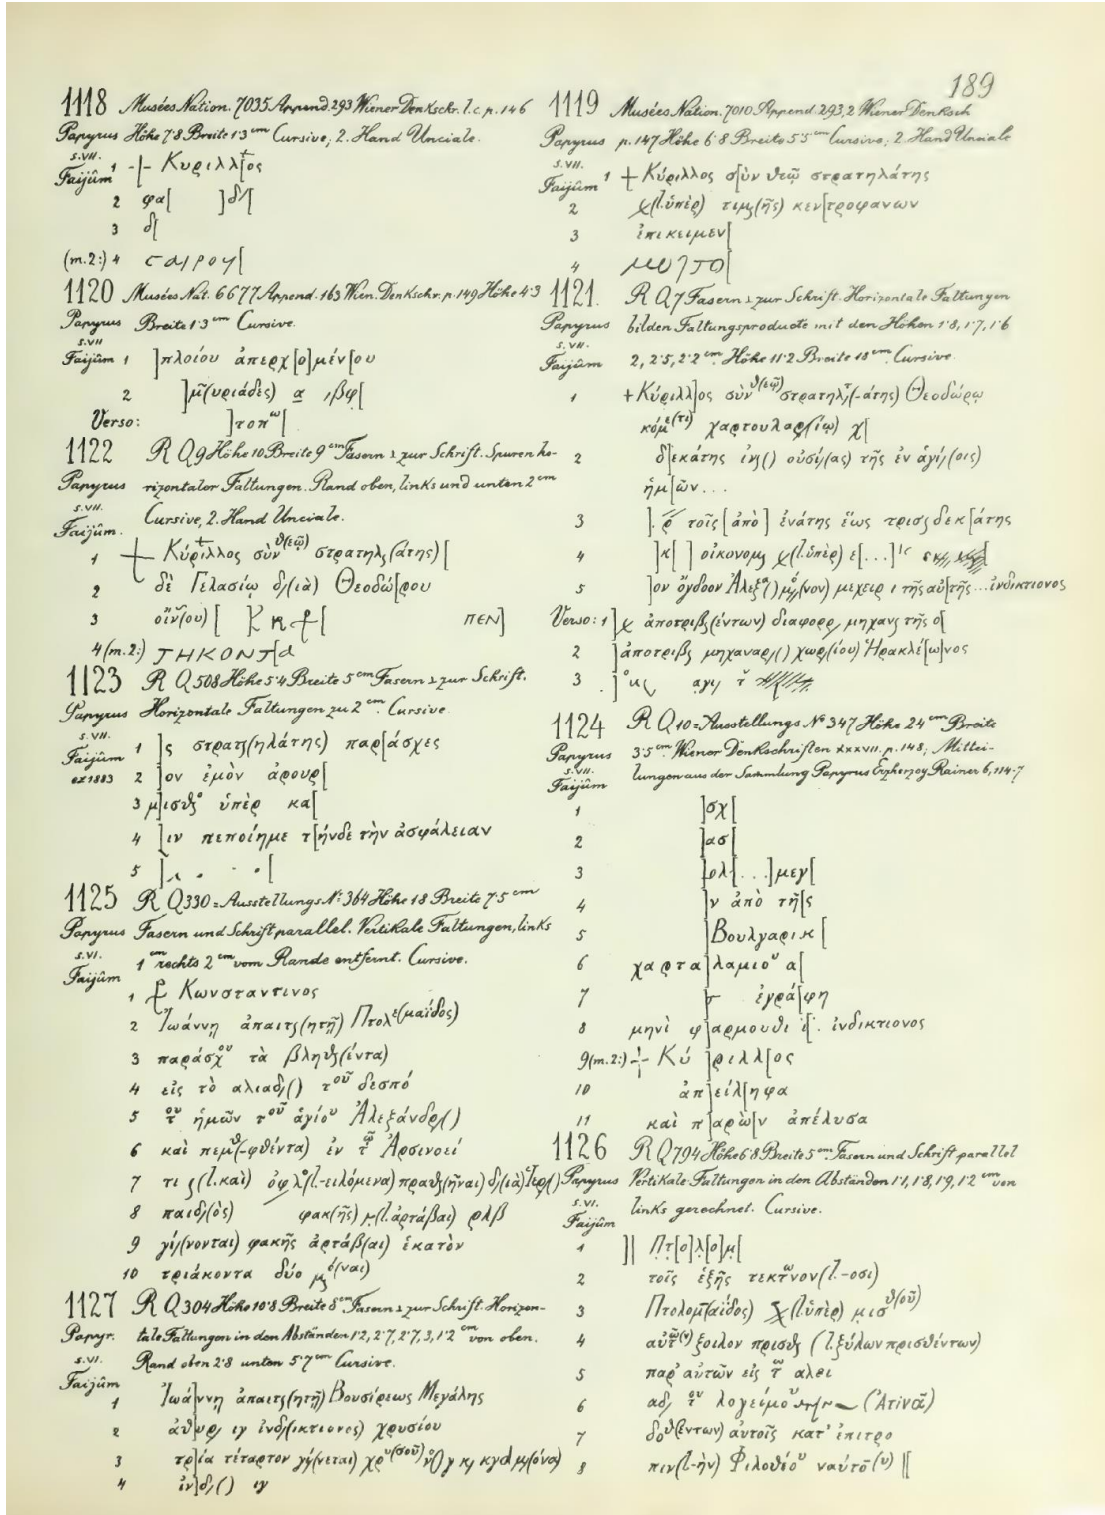 189
1118 Musées Nation. 7035 Append. 293 Wiener Denkschr. l.c. p. 146
Papyrus Höhe 7·8 Breite 1·3 cm Cursive; 2. Hand Unciale.
s. VII.
Faijûm 1 + Κυριλλ[ος
2 φα[ ]δ/[
3 δ[
(m. 2:) 4 σαιρου[
1120 Musées Nat. 6677 Append. 163 Wien. Denkschr. p. 149 Höhe 4·3
Papyrus Breite 1·3 cm Cursive.
s. VII
Faijûm 1 ]πλοίου ἀπερχ[ο]μέν[ου
2 ]μ̃(υριάδες) α ,βφ[
Verso: ]τοπω[
1122 R Q 9 Höhe 10 Breite 9 cm Fasern ⊥ zur Schrift. Spuren ho-
Papyrus rizontaler Faltungen. Rand oben, links und unten 2 cm
s. VII. Cursive, 2. Hand Unciale.
Faijûm.
1 + Κύριλλος σὺν θ(εῷ) στρατηλς(άτης)[
2 δὲ Γελασίῳ δ/(ιὰ) Θεοδώ[ρου
3 οἴν(ου)[ ΠΕΝ]
4 (m. 2:) ΤΗΚΟΝΤ[α
1123 R Q 508 Höhe 5·4 Breite 5 cm Fasern ⊥ zur Schrift.
Papyrus Horizontale Faltungen zu 2 cm. Cursive
s. VII.
Faijûm 1 ]ς στρατς(ηλάτης) παρ[άσχες
ex 1883 2 ]ον ἐμὸν ἀρουρ[
3 μ]ισθο ὑπὲρ κα[
4 ]ιν πεποίημε τ[ήνδε τὴν ἀσφάλειαν
5 ]λ . · . [
1125 R Q 330 = Ausstellungs No 364 Höhe 18 Breite 7·5 cm
Papyrus Fasern und Schrift parallel. Vertikale Faltungen, links
s. VI. 1 cm rechts 2 cm vom Rande entfernt. Cursive.
Faijûm
1 Κωνσταντινος
2 Ἰωάννῃ ἀπαιτς(ητῇ) Πτολε(μαίδος)
3 παράσχου τὰ βληθς(έντα)
4 εἰς τὸ αλιαδ/() τοῦ δεσπό
5 του ἡμῶν τοῦ ἁγίου Ἀλεξάνδρ/()
6 καὶ πεμθ(-φθέντα) ἐν τῷ Ἀρσινοεί
7 τι ς(l. καὶ) ὀφλο(l. -ειλόμενα) πραθς(ῆναι) δ/(ιὰ) Ἱερ/()
8 παιδ/(ὸς) φακ(ῆς) μ(l. ἀρτάβαι) ρλβ
9 γί/(νονται) φακῆς ἀρτάβ(αι) ἑκατὸν
10 τριάκοντα δύο μό(ναι)
1127 R Q 304 Höhe 10·8 Breite 8 cm Fasern ⊥ zur Schrift. Horizon-
Papyr. tale Faltungen in den Abständen 1·2, 2·7, 2·7, 3, 1·2 cm von oben.
s. VI. Rand oben 2·8 unten 5·7 cm Cursive.
Faijûm
1 Ἰωά]ννῃ ἀπαιτς(ητῇ) Βουσίρεως Μεγάλης
2 ἀθ]υρ, ιγ ἰνδ/(ικτιονος) χρυσίου
3 τρ]ία τέταρτον γί/(νεται) χρυ(σοῦ) γ κ, κγd μ/(όνα)
4 ἰν]δ/() ιγ
1119 Musées Nation. 7010 Append. 293, 2 Wiener Denksch
Papyrus p. 147 Höhe 6·8 Breite 5·5 cm Cursive; 2. Hand Unciale
s. VII.
Faijûm 1 + Κύριλλος σ[ὺν θεῷ στρατηλάτης
2 χ(l. ὑπὲρ) τιμς(ῆς) κεν[τροφανων
3 ἐπικειμεν[
4 [
1121. R Q 7 Fasern ⊥ zur Schrift. Horizontale Faltungen
Papyrus bilden Faltungsproducte mit den Höhen 1·8, 1·7, 1·6
s. VII.
Faijûm 2, 2·5, 2·2 cm. Höhe 11·2 Breite 18 cm. Cursive.
1 + Κύριλλ]ος σὺν θ(εῷ) στρατηλ/τ(-άτης) Θεοδώρῳ
κόμε(τι) χαρτουλαρ(ίῳ) χ[
2 δ]εκάτης ἰνς() οὐσί/(ας) τῆς ἐν ἁγί/(οις)
ἡμ[ῶν...
3 ]. ρ τοῖς [ἀπὸ] ἐνάτης ἕως τρισςδεκ[άτης
4 ]κ[ ] οἰκονομς χ(l. ὑπὲρ) ε[...]ις
5 ]ον ὄγδοον Ἀλεξα() μό/(νον) μεχειρ ι τῆς αὐ[τῆς...ἰνδικτιονος
Verso: 1 ]χ ἀποτριβς(έντων) διαφορρ, μηχανς τῆς ο[
2 ]ἀποτριβς μηχαναρ/() χωρ/(ίου) Ἡρακλέ[ω]νος
3 .]οκς αγι,
1124 R Q 10 = Ausstellungs No 347 Höhe 24 cm Breite
Papyrus 3·5 cm. Wiener Denkschriften XXXVII. p. 148; Mittei-
s. VII.
Faijûm lungen aus der Sammlung Papyrus Erzherzog Rainer 6, 114-7
1 ]σχ[
2 ]ασ[
3 ]ολ[...]μεγ[
4 ]ν ἀπὸ τῆ[ς
5 ]Βουλγαρικ[
6 χαρτα]λαμιου α[
7 ἐγρά[φη
8 μηνὶ φ]αρμουθι ι[. ἰνδικτιονος
9 (m. 2:) + Κύ]ριλλ[ος
10 ἀπ]είλ[ηφα
11 καὶ π]αρὼ[ν ἀπέλυσα
1126 R Q 794 Höhe 6·8 Breite 5 cm. Fasern und Schrift parallel
Papyrus Vertikale Faltungen in den Abständen 1·1, 1·8, 1·9, 1·2 cm von
s. VI. links gerechnet. Cursive.
Faijûm
1 || Πτ[ο]λ[ο]μ[
2 τοῖς ἑξῆς τεκτωνον(l. -οσι)
3 Πτολομ(αίδος) χ(l. ὑπὲρ) μισθ(οῦ)
4 αὐτῶ(ν) ξοιλον πρισθς (l. ξύλων πρισθέντων)
5 παρ’ αὐτῶν εἰς τω αλει
6 αδ, του λογείμου (Ἀτινᾶ)
7 δοθ(έντων) αὐτοῖς κατ’ ἐπιτρο
8 πιν(l. -ὴν) Φιλοθέου ναύτο(υ) ||